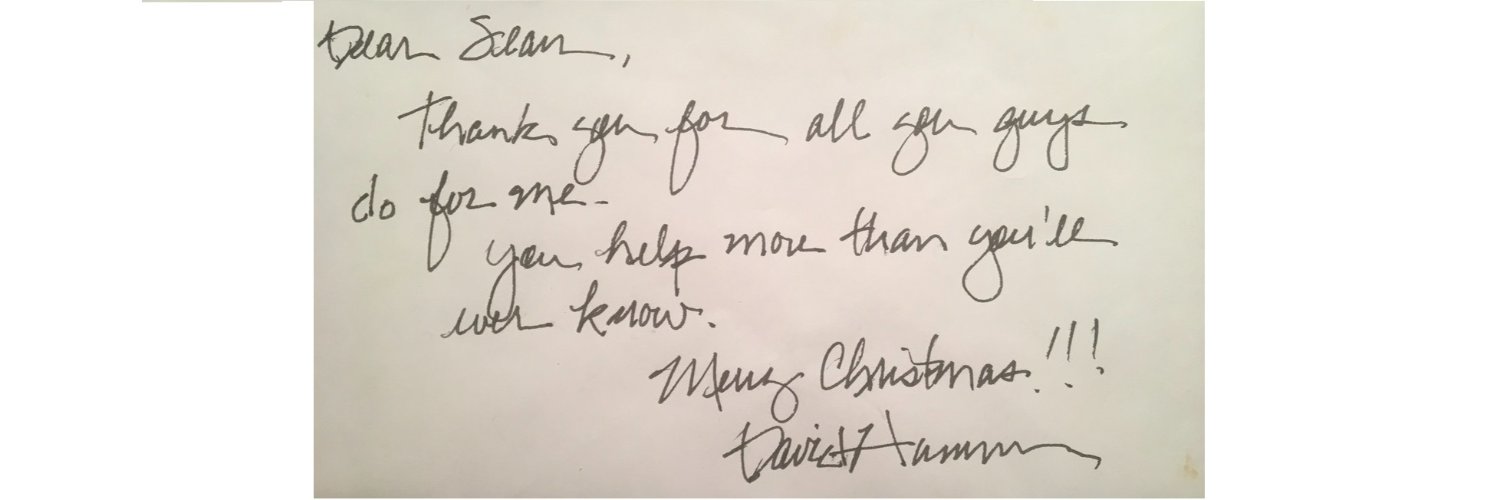 Dear Sean,
Thank you for all you guys
do for me.
you help more than you'll
ever know.
Merry Christmas!!!
David